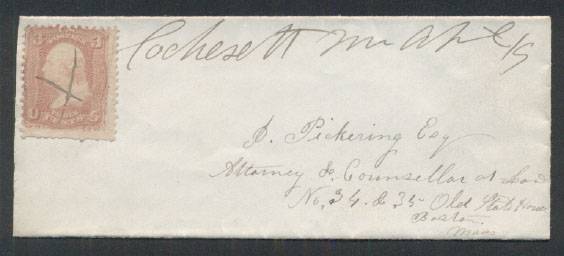 Cochesett Ms April 19
3 3
D. Pickering Esq
Attorney & Counsellor at Law
No, 34. & 35 Old State House
Boston
Mass